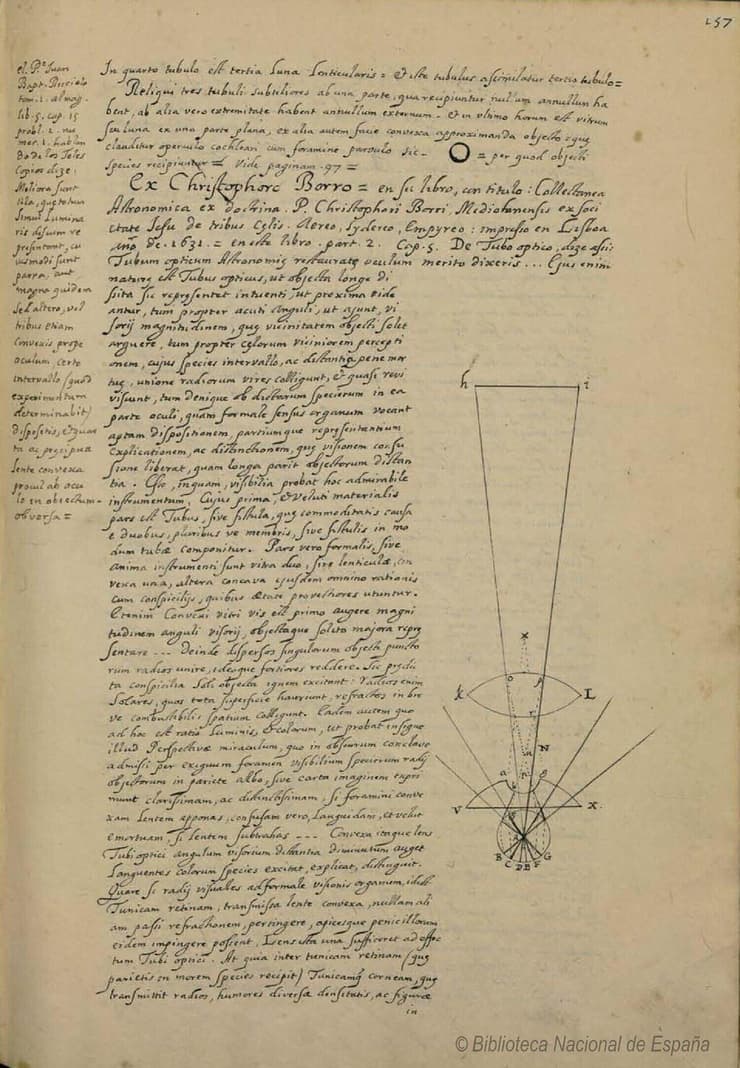 157
el P.e Juan
Bapt. Riciolo
tom. 1. almag.
lib. 5. cap. 15
probl. 2. nu
mer. 1. hablan
do de los Teles
copios dize:
Meliora sunt
illa, quæ totum
simul Lumina
ris discum re
presentent, cu
iusmodi sunt
parva, aut
magna quidem
sed altero, vel
tribus etiam
convexis prope
oculum, certo
intervallo (quod
experimentum
determinabit)
dispositis, et qua
ta ac præcipua
lente convexa
procul ab ocu
lo in obiectum
obversa =
In quarto tubulo est tertia Luna Lenticularis = et iste tubulus assimilatur tertio tubulo =
Reliqui tres tubuli subtiliores ab una parte, qua recipiuntur nullum annullum ha
bent, ab alia vero extremitate habent annullum externum. et in vltimo horum est vitrum
seu luna ex una parte plana, ex alia autem sive convexa approximanda objecto eque
clauditur operculo cochleari cum foramine parvulo sic - = per quod objecti
species recipiuntur = Vide paginam 97 =
Ex Christophoro Borro = en su libro, con titulo: Collectanea
Astronomica ex doctrina. P. Christophori Borri, Mediolanensis ex soci
etate Jesu de tribus Cælis. Aereo, Sydereo, Empyreo: impreso en Lisboa
año de 1631. = en este libro. part. 2. Cap. 5. De Tubo optico, dize assi:
Tubum opticum Astronomiæ restauratæ oculum merito dixeris ... Ejus enim
naturæ est Tubus opticus, ut objecta longe di
ssita sic representet intuenti, ut proxima vide
antur, tum propter acuti anguli, ut ajunt, vi
sorij magnitudinem, quæ vicinitatem objecti solet
arguere, tum propter colorum viviniorem percepti
onem, cujus species intervallo, ac distantia pene mor
tuæ, unione radiorum vires colligunt, et quasi revi
viscunt, tum denique ob dictarum specierum in ea
parte oculi, quam formale sensus organum vocant
aptam dispositionem, partiumque representantium
explicationem, ac distinctionem, quæ visionem confu
sione liberat, quam longa parit objectorum distan
tia. Hoc, inquam, visibilia probat hoc admirabile
instrumentum, Cujus prima, et veluti materialis
pars est Tubus, sive fistula, quæ commoditatis causa
e duobus, pluribus ve membris, sive fistulis in mo
dum tubæ componitur. Pars vero formalis, sive
anima instrumenti sunt vitra duo, sive lenticulæ, con
vexa una, altera concava ejusdem omnino rationis
cum conspicilijs, quibus ætate provectiores utuntur.
Etenim Convexi vitri vis est primo augere magni
tudinem anguli visorij, objectaque solito majora repre
sentare --- Deinde dispersos singulorum objecti puncto
rum radios unire, ideoque fortiores reddere. Sic prædic
ta conspicilia Soli objecta ignem excitant: radios enim
Solares, quos tota superficie hauriunt, refractos in bre
ve combustibili spatium colligunt. Eadem autem quo
ad hoc est ratio luminis, et colorum, ut probat insigne
illud Perspectivæ miraculum, quo in obscurum conclave
admissi per exiguum foramen visibilium specierum radij
objectorum in pariete albo, sive carta imaginem expri
munt clarissimam, ac distinctissimam, si foramini conve
xam Lentem apponas, confusam vero, Languidam, et velut
emortuam, si Lentem subtrahas --- Convexa itaque lens
Tubi optici angulum visorium distantia diminutum auget
Languentes colorum species excitat, explicat, distinguit.
Quare si radij visuales ad formale visionis organum, idest
Tunicam retinam, transmissa lente convexa, nullam ali
am passi refractionem, pertingere, apicesque penicillorum
eidem impingere possent, Lens ista una sufficeret ad effec
tum Tubi optici. At quia inter tunicam retinam (quæ
parietis in morem species recipit) Tunicamque corneam, quæ
transmittit radios, humores diversæ densitatis, ac figuræ
in
h i
x
o p
k L
r
N
m
a e
n
V X
B C D E F G
© Biblioteca Nacional de España